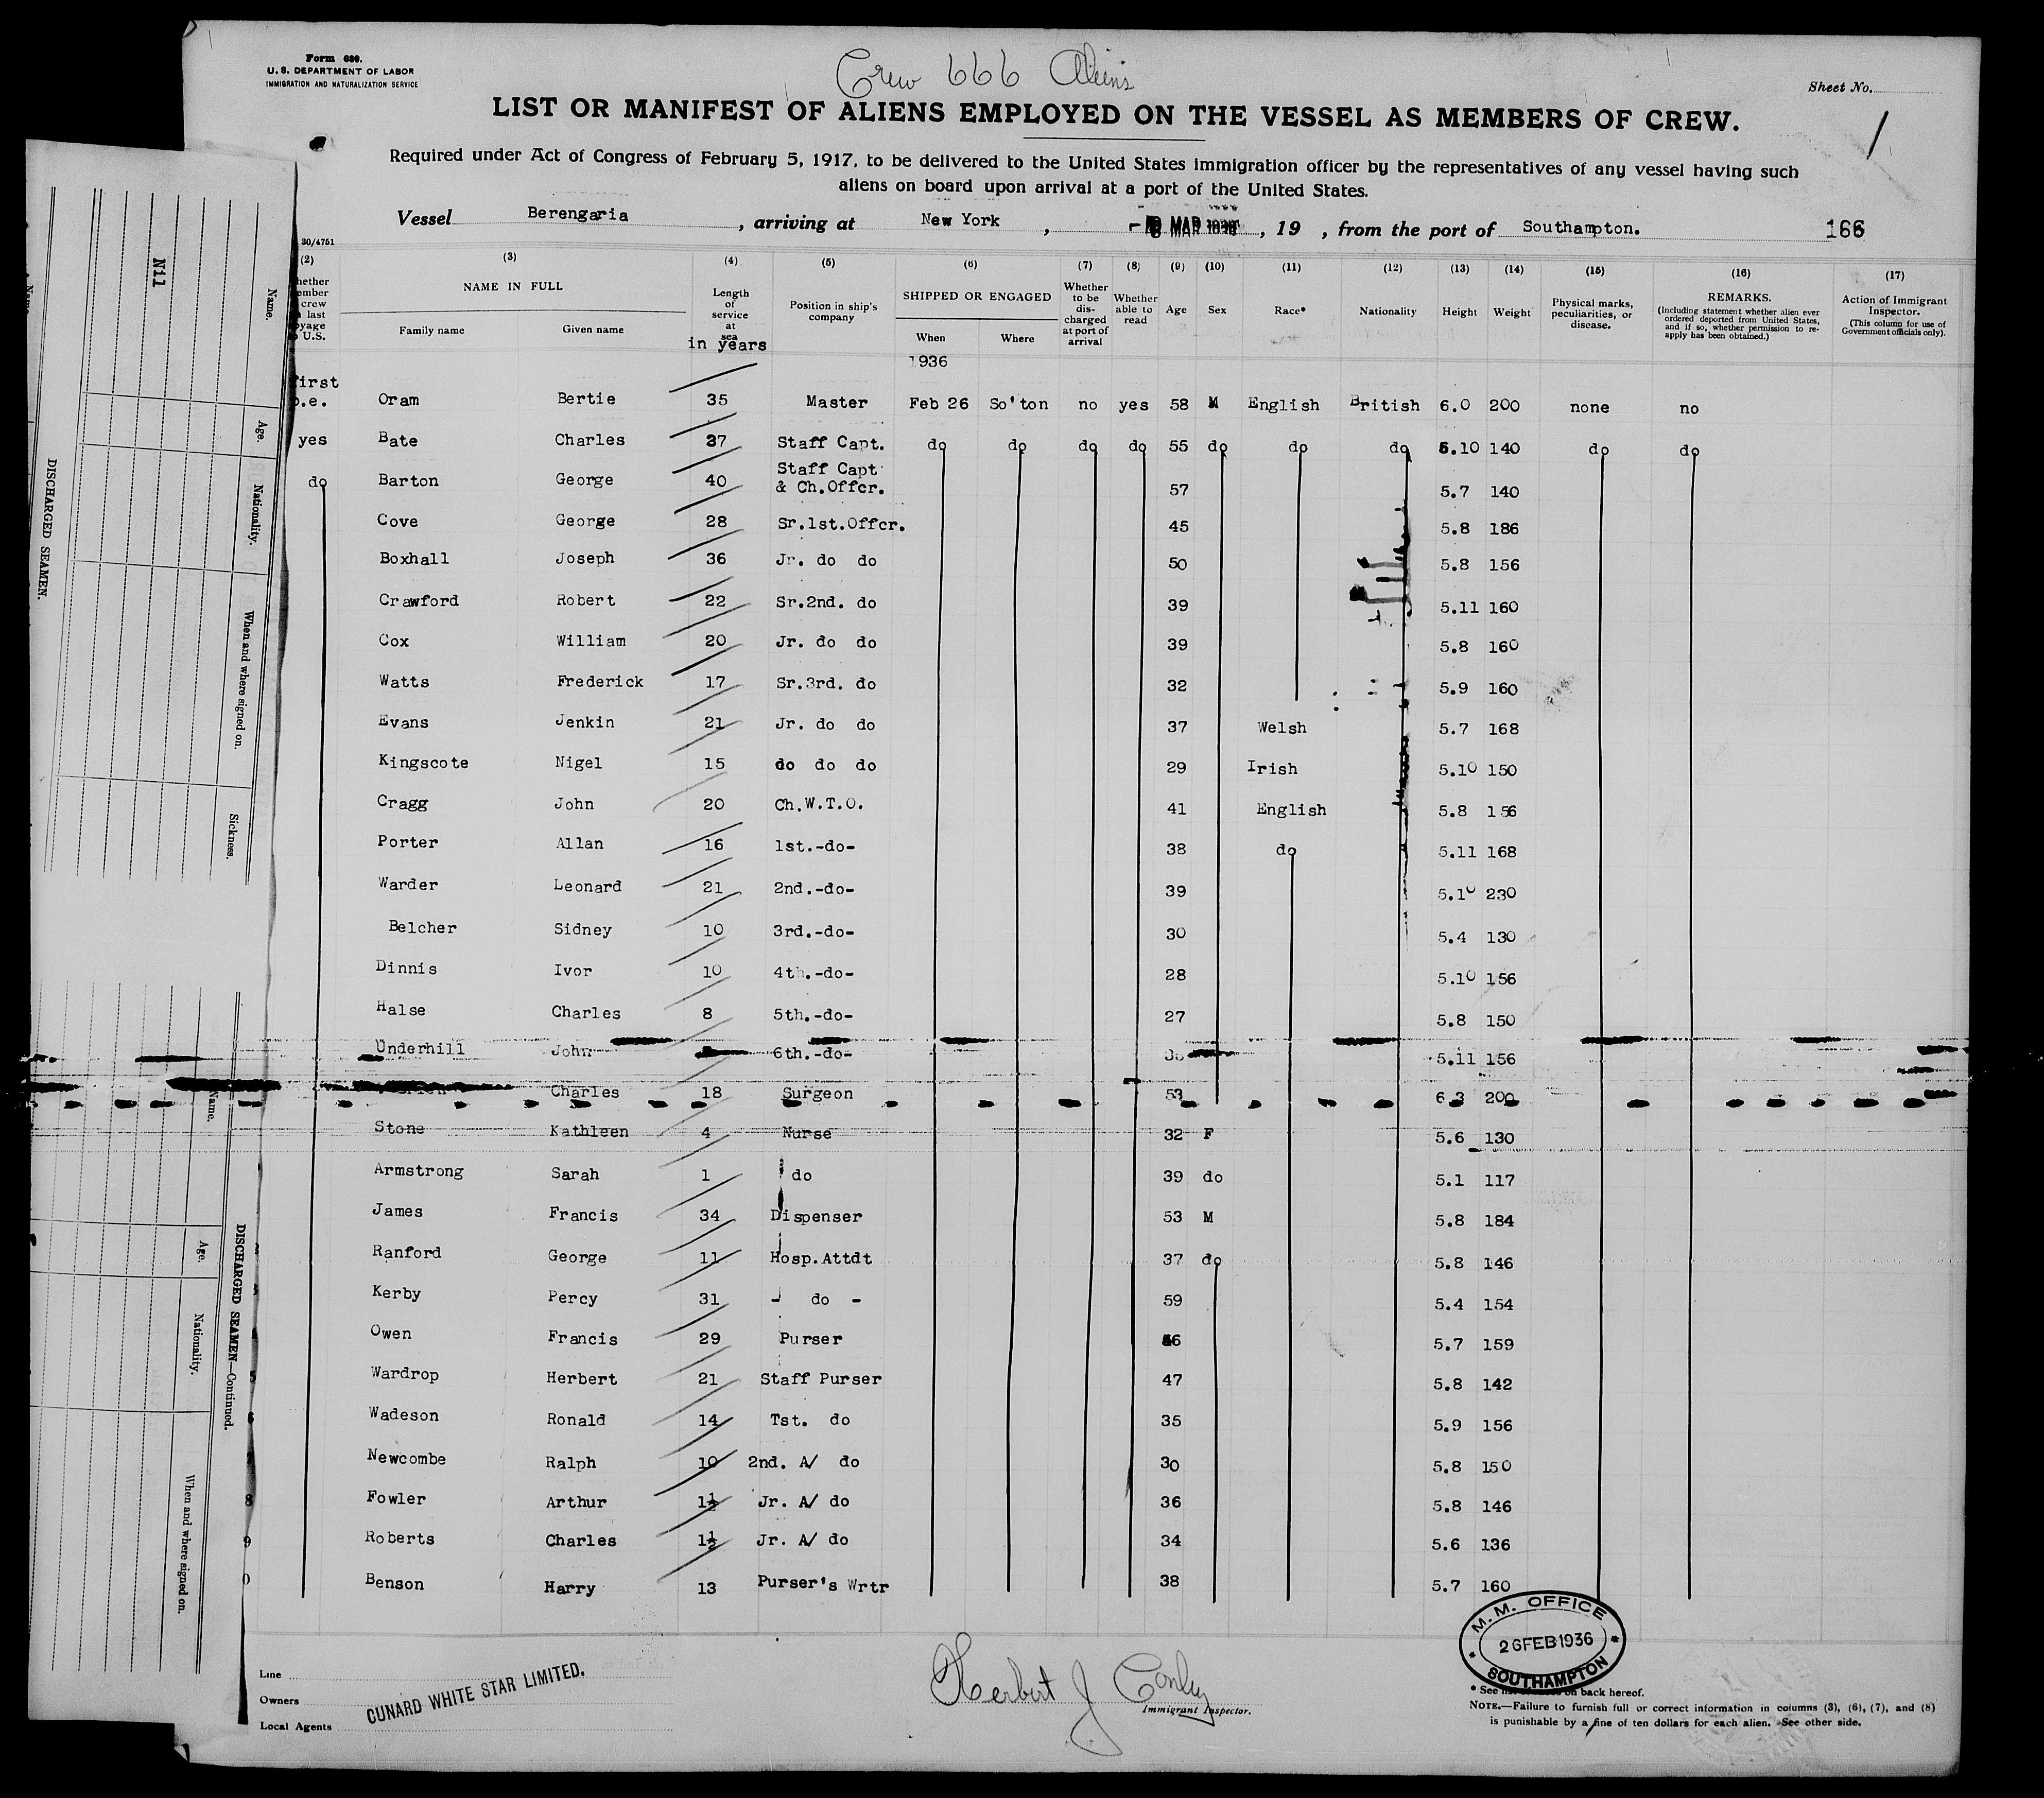 Form 680.
U. S. DEPARTMENT OF LABOR
IMMIGRATION AND NATURALIZATION SERVICE
Crew 666 Aliens
Sheet No.
1
LIST OR MANIFEST OF ALIENS EMPLOYED ON THE VESSEL AS MEMBERS OF CREW.
Required under Act of Congress of February 5, 1917, to be delivered to the United States immigration officer by the representatives of any vessel having such
aliens on board upon arrival at a port of the United States.
Vessel Berengaria , arriving at New York , MAR , 19 , from the port of Southampton. 166
30/4751
(2) (3) (4) (5) (6) (7) (8) (9) (10) (11) (12) (13) (14) (15) (16) (17)
NAME IN FULL
Family name Given name
Length of service at sea
in years
Position in ship's company
SHIPPED OR ENGAGED
When Where
Whether to be discharged at port of arrival
Whether able to read
Age Sex Race* Nationality Height Weight
Physical marks, peculiarities, or disease.
REMARKS.
(Including statement whether alien ever ordered deported from United States, and if so, whether permission to reapply has been obtained.)
Action of Immigrant Inspector.
(This column for use of Government officials only).
1936
Oram Bertie 35 Master Feb 26 So'ton no yes 58 M English British 6.0 200 none no
yes Bate Charles 37 Staff Capt. do do do do 55 do do do 5.10 140 do do
do Barton George 40 Staff Capt & Ch.Offcr. 57 5.7 140
Cove George 28 Sr.1st.Offcr. 45 5.8 186
Boxhall Joseph 36 Jr. do do 50 5.8 156
Crawford Robert 22 Sr.2nd. do 39 5.11 160
Cox William 20 Jr. do do 39 5.8 160
Watts Frederick 17 Sr.3rd. do 32 5.9 160
Evans Jenkin 21 Jr. do do 37 Welsh 5.7 168
Kingscote Nigel 15 do do do 29 Irish 5.10 150
Cragg John 20 Ch.W.T.O. 41 English 5.8 156
Porter Allan 16 1st.-do- 38 do 5.11 168
Warder Leonard 21 2nd.-do- 39 5.10 230
Belcher Sidney 10 3rd.-do- 30 5.4 130
Dinnis Ivor 10 4th.-do- 28 5.10 156
Halse Charles 8 5th.-do- 27 5.8 150
Underhill John 6th.-do- 5.11 156
Charles 18 Surgeon 53 6.3 200
Stone Kathleen 4 Nurse 32 F 5.6 130
Armstrong Sarah 1 do 39 do 5.1 117
James Francis 34 Dispenser 53 M 5.8 184
Ranford George 11 Hosp.Attdt 37 do 5.8 146
Kerby Percy 31 - do - 59 5.4 154
Owen Francis 29 Purser 5.7 159
Wardrop Herbert 21 Staff Purser 47 5.8 142
Wadeson Ronald 14 Tst. do 35 5.9 156
Newcombe Ralph 10 2nd. A/ do 30 5.8 150
Fowler Arthur 1½ Jr. A/ do 36 5.8 146
Roberts Charles 1½ Jr. A/ do 34 5.6 136
Benson Harry 13 Purser's Wrtr 38 5.7 160
M. M. OFFICE
26FEB1936
SOUTHAMPTON
Line
Owners
Local Agents
CUNARD WHITE STAR LIMITED.
Herbert J Conley
Immigrant Inspector.
* See on back hereof.
NOTE.—Failure to furnish full or correct information in columns (3), (6), (7), and (8)
is punishable by a fine of ten dollars for each alien. See other side.
DISCHARGED SEAMEN.
Name. Age. Nationality. When and where signed on. Sickness.
Nil
DISCHARGED SEAMEN—Continued.
Name. Age. Nationality. When and where signed on.